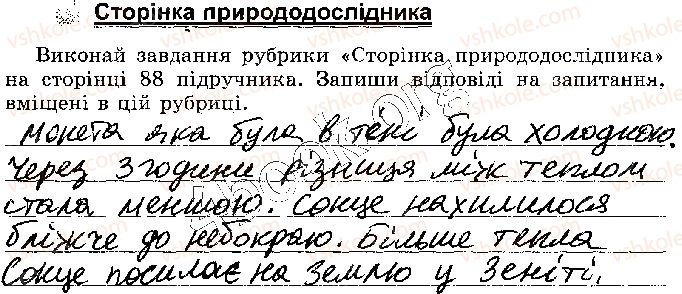 Сторінка природодослідника
Виконай завдання рубрики «Сторінка природодослідника»
на сторінці 88 підручника. Запиши відповіді на запитання,
вміщені в цій рубриці.
Монета яка була в тені була холодною.
Через 3 години різниця між теплом
стала меншою. Сонце нахилилося
ближче до небокраю. Більше тепла
Сонце посилає на Землю у Зеніті.